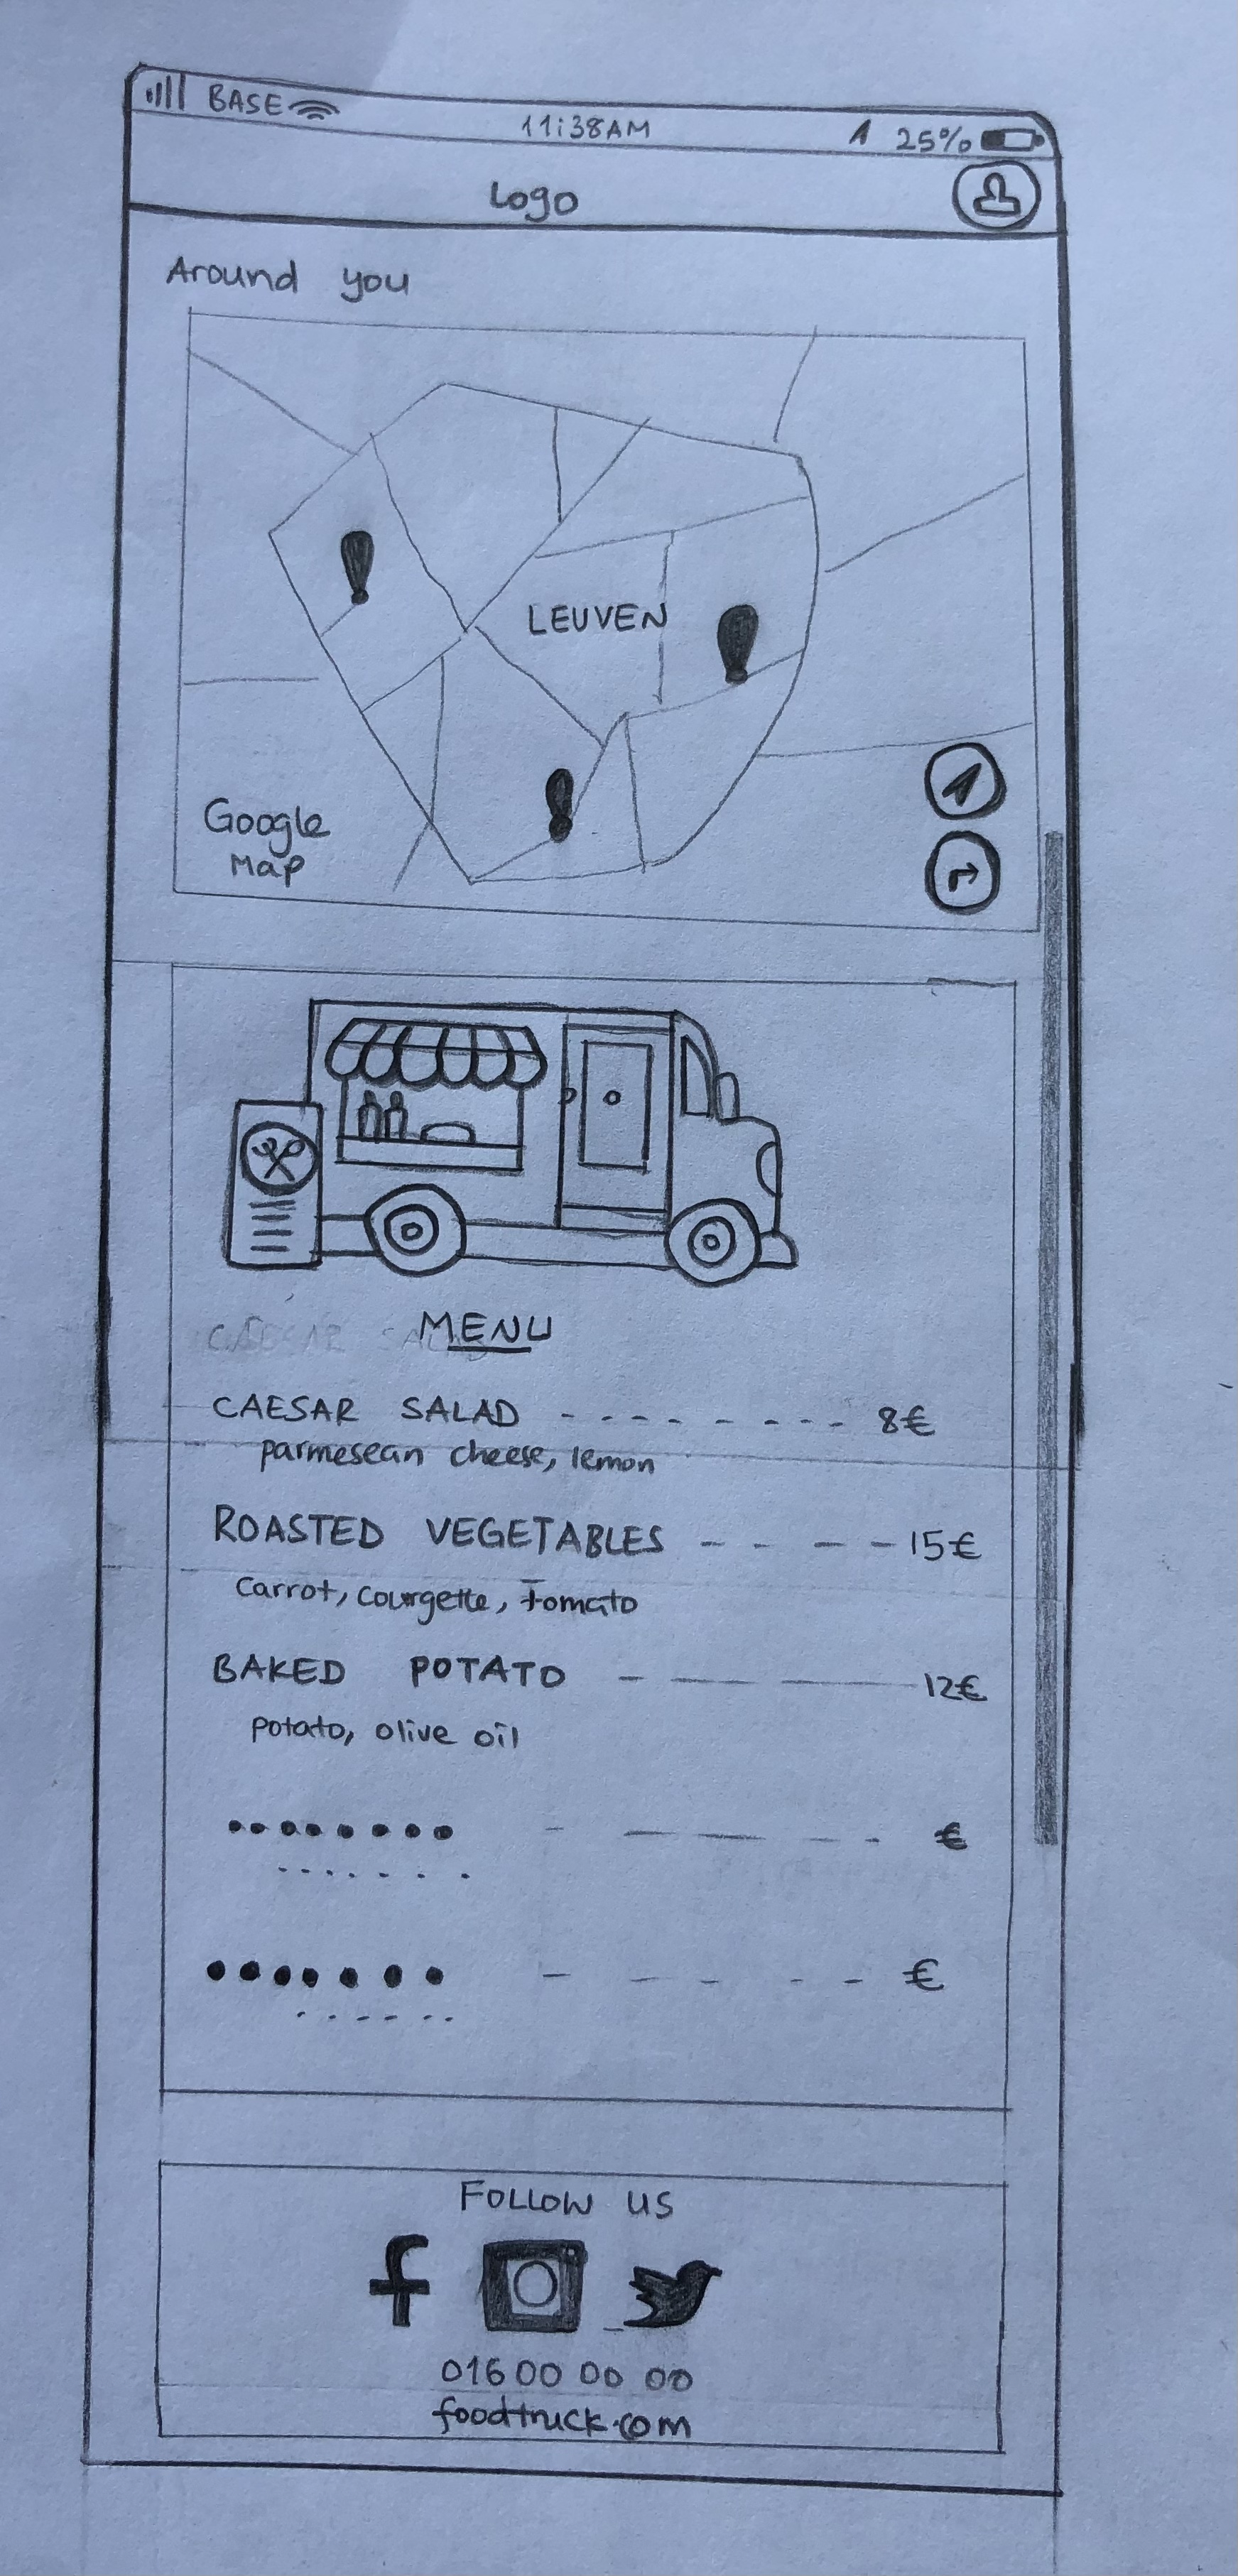 BASE
11:38AM
25%
Logo
Around you
LEUVEN
Google
Map
MENU
CAESAR SALAD
CAESAR SALAD - - - - - - - - - 8€
parmesean cheese, lemon
ROASTED VEGETABLES - - - - 15€
carrot, courgette, tomato
BAKED POTATO - - - 12€
potato, olive oil
€
€
FOLLOW US
016 00 00 00
foodtruck.com